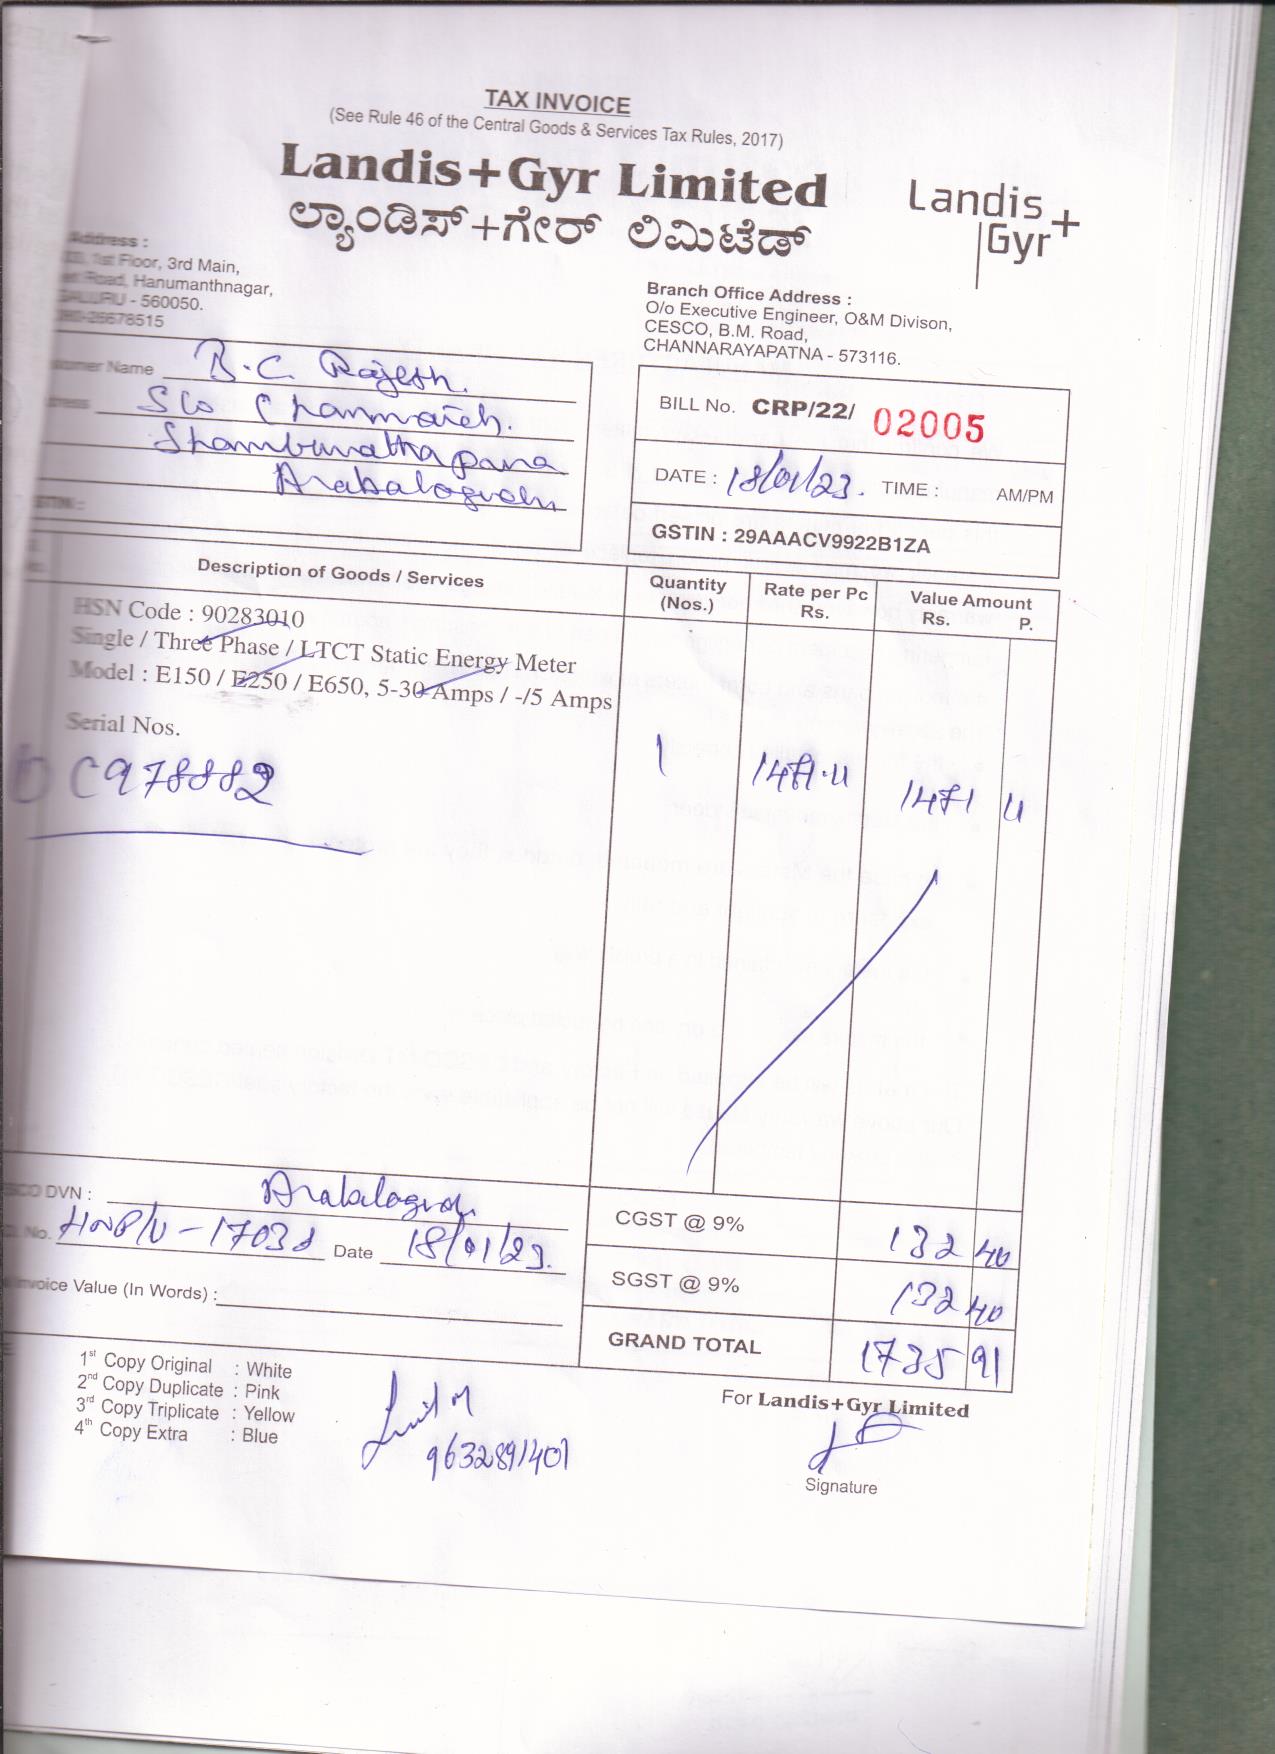 TAX INVOICE
(See Rule 46 of the Central Goods & Services Tax Rules, 2017)
Landis+Gyr Limited
ಲ್ಯಾಂಡಿಸ್+ಗೇರ್ ಲಿಮಿಟೆಡ್
Landis+
Gyr
Address :
1st Floor, 3rd Main,
Road, Hanumanthnagar,
- 560050.
Branch Office Address :
O/o Executive Engineer, O&M Divison,
CESCO, B.M. Road,
CHANNARAYAPATNA - 573116.
Name B.C. Rajesh.
S/o
Shambunathapura
Arakalagudu
BILL No. CRP/22/ 02005
DATE : 18/01/23. TIME : AM/PM
GSTIN : 29AAACV9922B1ZA
Description of Goods / Services Quantity (Nos.) Rate per Pc Rs. Value Amount Rs. P.
HSN Code : 90283010
Single / Three Phase / LTCT Static Energy Meter
Model : E150 / E250 / E650, 5-30 Amps / -/5 Amps
Serial Nos.
C978882 1 1471.11 1471 11
DVN : Arakalagudu
No. Date 18/01/23.
Invoice Value (In Words) :
CGST @ 9% 132 40
SGST @ 9% 132 40
GRAND TOTAL 1735 91
1st Copy Original : White
2nd Copy Duplicate : Pink
3rd Copy Triplicate : Yellow
4th Copy Extra : Blue
9632891401
For Landis+Gyr Limited
Signature